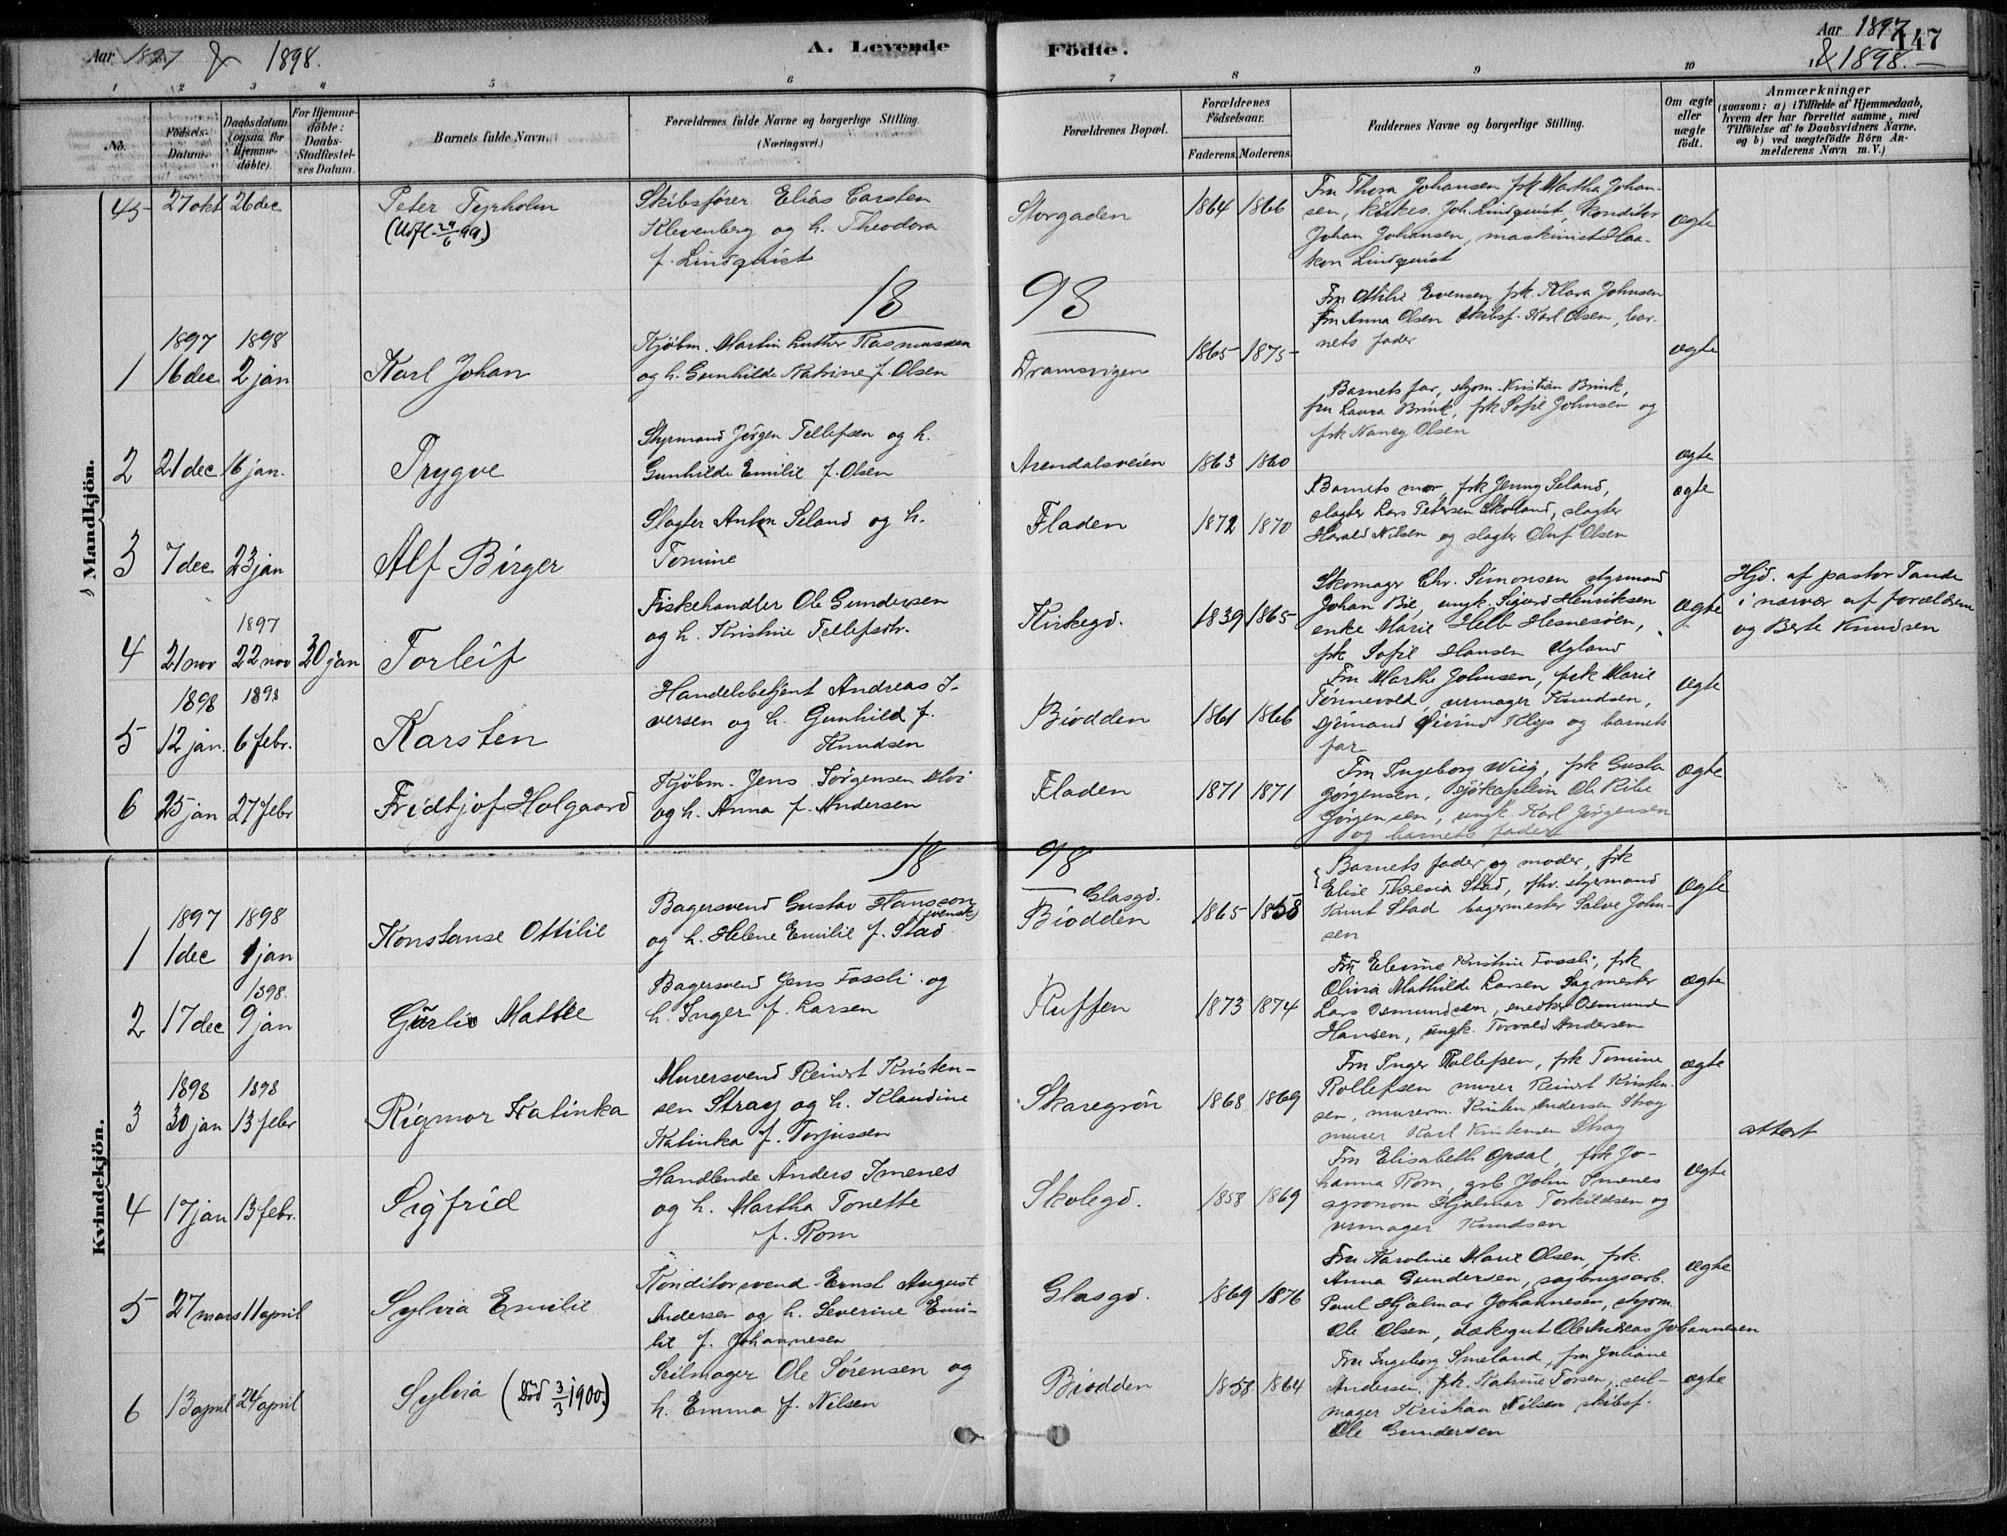 Aar 1897 & 1898.
A. Levende Födte.
Aar 1897 & 1898.
147
1 2 3 4 5 6 7 8 9 10
No.
Födsels-Datum.
Daabsdatum (ogsaa for Hjemmedöbte).
For Hjemmedöbte: Daabs-Stadfæstelses Datum.
Barnets fulde Navn.
Forældrenes fulde Navne og borgerlige Stilling.
(Næringsvei.)
Forældrenes Bopæl.
Forældrenes Födselsaar.
Faderens. Moderens.
Faddernes Navne og borgerlige Stilling.
Om ægte eller uægte födt.
Anmærkninger
(saasom: a) i Tilfælde af Hjemmedaab,
hvem der har forrettet samme, med
Tilföielse af to Daabsvidners Navne,
og b) ved uægtefödte Börn Anmelderens Navn m. V.)
Mandkjön.
45 27 okt 26 dec
Peter Tyrholm
(Udfl. 24/6 99.)
Skibsfører Elias Carsten
Klevenberg og h. Theodora
f. Lindquist
Storgaden
1864 1866
Fru Thora Johansen frk Martha Johan-
sen, Joh. Lindquist, konditor
Johan Johansen, maskinist Haa-
kon Lindquist
ægte
18 98
1897 1898
1 16 dec 2 jan
Karl Johan
Kjøbm. Martin Luther Rasmussen
og h. Gunhilde Katrine f. Olsen
Dramsvigen
1865 1875
Fru Ottilie Evensen, frk. Klara Johnsen
Fru Anna Olsen skibsf. Karl Olsen, bar-
nets fader
ægte
2 21 dec 16 jan.
Trygve
Styrmand Jørgen Tellefsen og h.
Gunhilde Emilie f. Olsen
Arendalsveien
1863 1860
Barnets far, styrm. Kristian Brink,
fru Laura Brink, frk Sofie Johnsen og
frk Nancy Olsen
ægte
3 7 dec 23 jan
Alf Birger
Slagter Anton Seland og h.
Tomine
Fladen
1872 1870
Barnets mor, frk Jenny Seland,
slagter Lars Petersen Skolland, slagter
Harald Nilsen og slagter Oluf Olsen
ægte
1897
4 21 nov 22 nov 30 jan
Torleif
Fiskehandler Ole Gundersen
og h. Kristine Tellefsdtr.
Kirkegd.
1839 1865
Skomager Chr. Simonsen styrmand
Johan Bie, ungk. Sigurd Henriksen
enke Marie Helb Hesnesøen,
frk Sofie Hansen Ugland
ægte
Hjd. af pastor Tande
i nærvær af forældrene
og Berte Knudsen
1898 1898
5 12 jan. 6 febr.
Karsten
Handelsbetjent Andreas I-
versen og h. Gunhild f.
Knudsen
Biodden
1861 1866
Fru Marthe Johnsen, frk Marie
Tønnevold, urmager Knudsen,
Eivind Klep og barnets
far
ægte
6 25 jan 27 febr
Fridtjof Holgaard
Kjøbm. Jens Jørgensen Moi
og h. Anna f. Andersen
Fladen
1871 1871
Fru Ingeborg Wiig, frk Gusta
Jørgensen, sjökaptein Ole Ribe
Jørgensen, ungk. Karl Jørgensen
og barnets fader
ægte
Kvindekjön.
18 98
1897 1898
1 1 dec 1 jan
Konstanse Ottilie
Bagersvend Gustav Hansson
(svensk)
og h. Helene Emilie f. Stad
Glasgd.
Biodden
1865 1858
Barnets fader og moder, frk
Elise Theresia Stad, fhv. styrmand
Knut Stad bagermester Salve John-
sen
ægte
1898.
2 17 dec 9 jan
Gurli Mattee
Bagersvend Jens Fossli og
h. Inger f. Larsen
Ruffen
1873 1874
Fru Elevine Kristine Fossli, frk
Olivia Mathilde Larsen Sagmester
Lars Osmundsen, snedker Osmund
Hansen, ungk. Torvald Andersen
ægte
1898 1898
3 30 jan 13 febr
Rigmor Katinka
Murersvend Reinert Kristen-
sen Stray og h. Klaudine
Katinka f. Torjussen
Skaregrøn
1868 1869
Fru Inger Rollefsen, frk Tomine
Rollefsen murer Reinert Kristen-
sen, murerm. Kristen Andersen Stray
murer Karl Kristensen Stray
ægte
attest
4 17 jan 13 febr.
Sigfrid
Handlende Anders Imenes
og h. Martha Tonette
f. Rom
Skolegd.
1858 1869
Fru Elisabeth Opsal, frk Jo-
hanna Rom, grb John Imenes
agronom Hjalmar Torkildsen og
urmager Knudsen
ægte
5 27 mars 11 april
Sylvia Emilie
Konditorsvend Ernst August
Andersen og h. Severine Emi-
lie f. Johannesen
Glasgd.
1869 1876
Fru Karoline Marie Olsen, frk
Anna Gundersen, sagbrugsarb.
Paul Hjalmar Johannesen, styrm.
Ole Olsen, dæksgut Ole Andreas Johannesen
ægte
6 13 april 24 april
Sylvia (Död 3/3 1900.)
Seilmager Ole Sørensen og
h. Emma f. Nilsen
Biodden
1858 1864
Fru Ingeborg Smeland, fru Juliane
Andersen, frk. Katrine Torsen, seil-
mager Kristian Nilsen skibsf.
Ole Gundersen
ægte